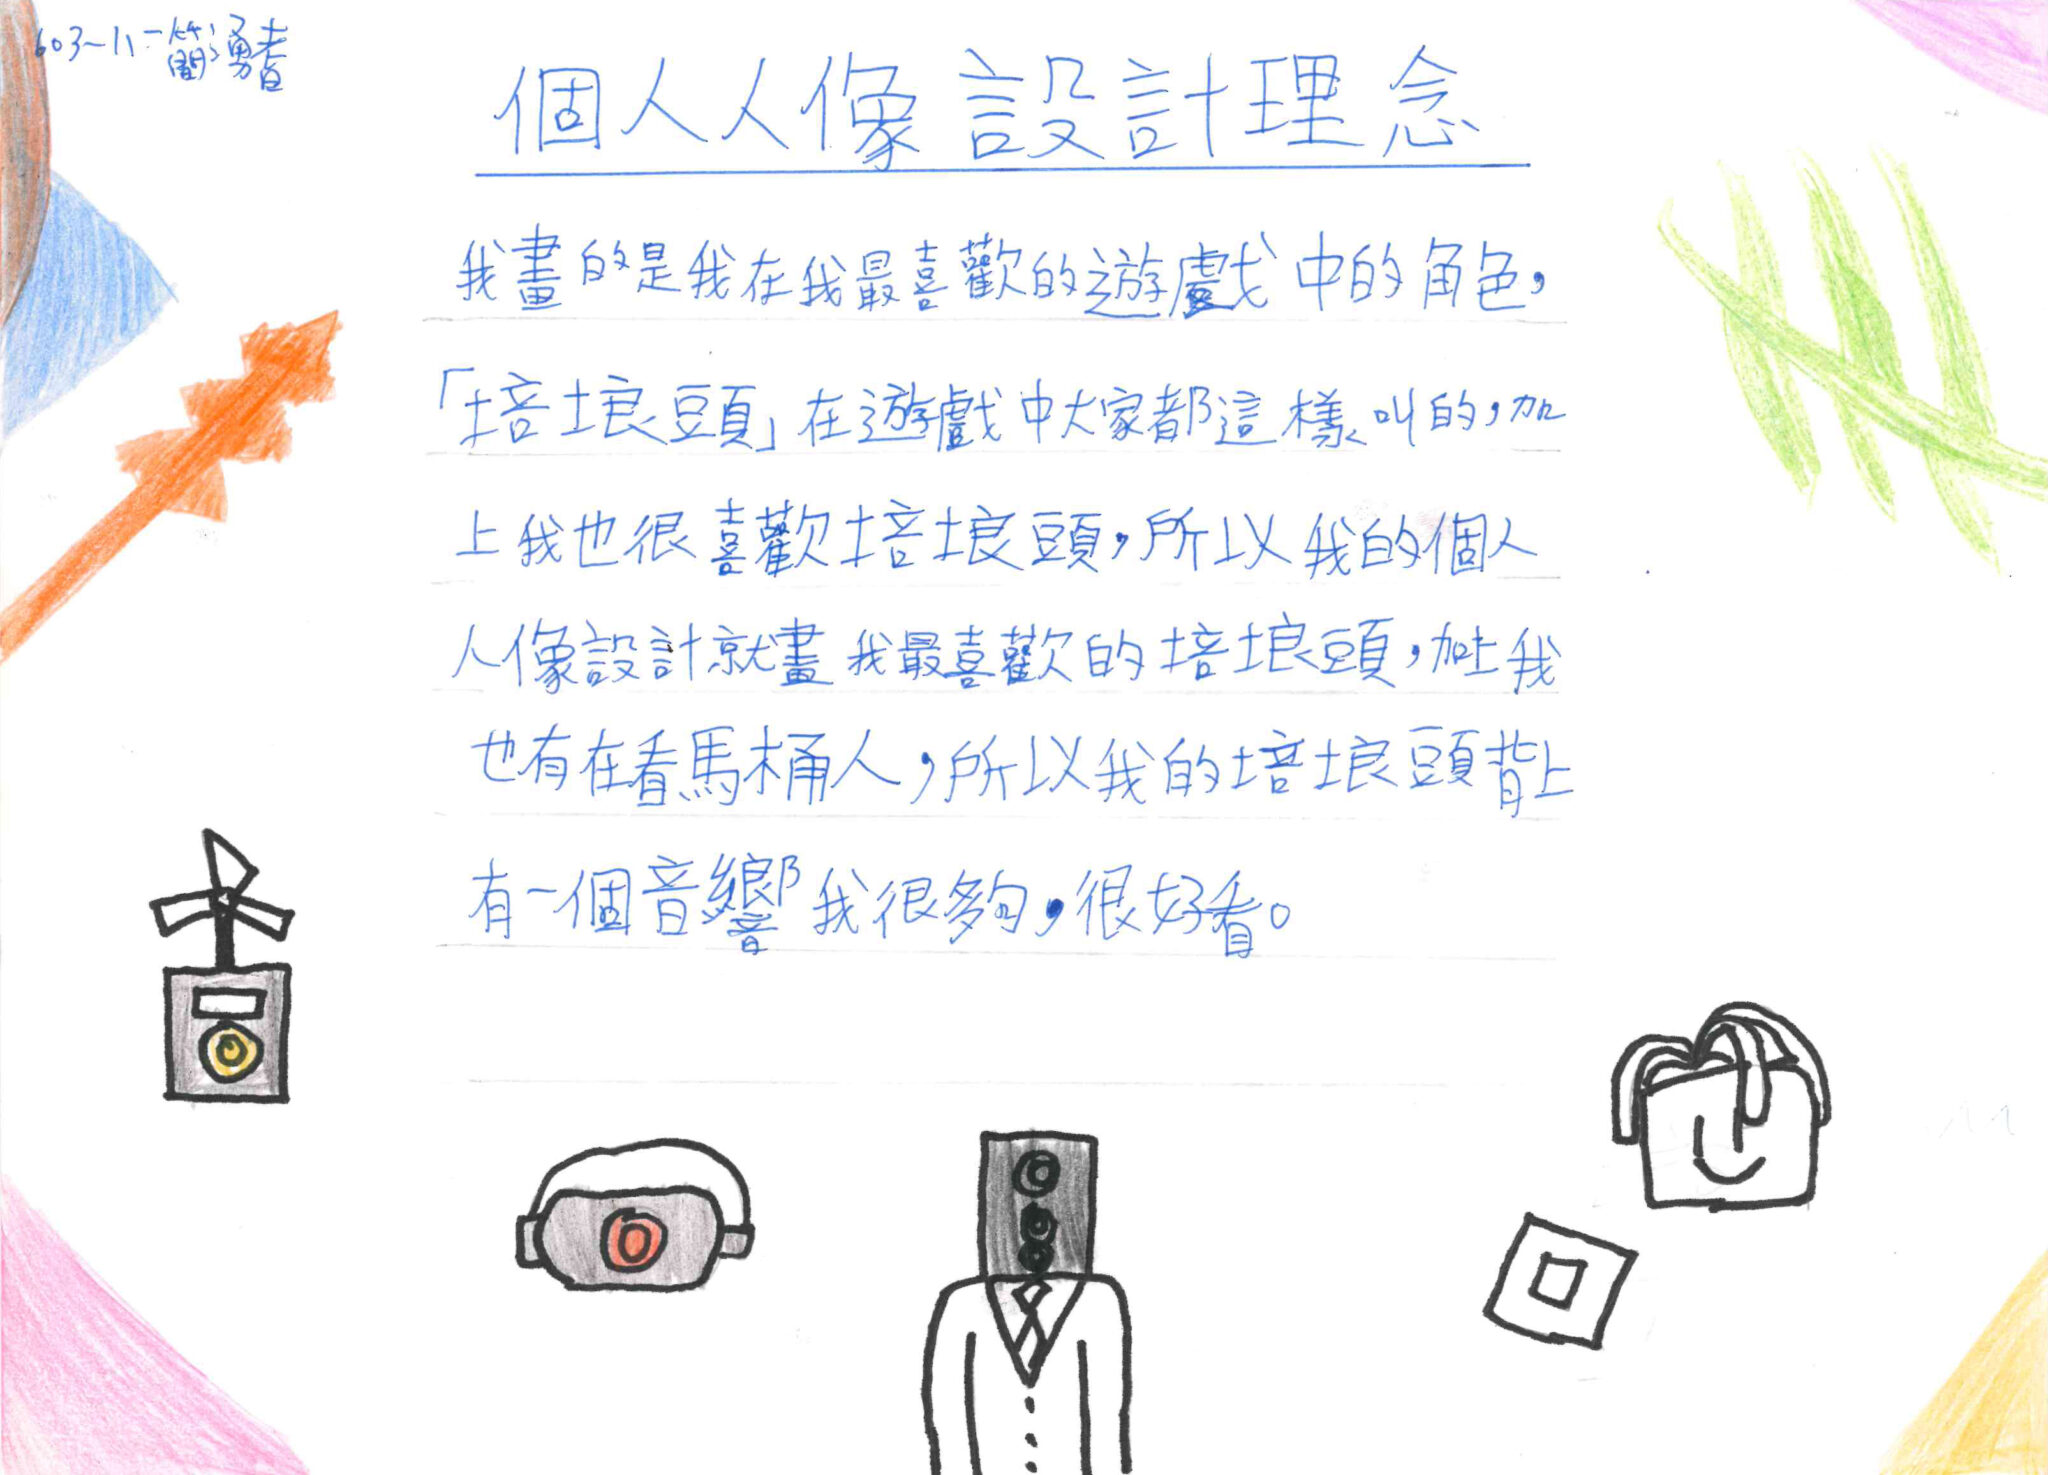 603-11 簡湧耆
個人人像設計理念
我畫的是我在我最喜歡的遊戲中的角色，
「培埌頭」在遊戲中大家都這樣叫的，加
上我也很喜歡培埌頭，所以我的個人
人像設計就畫我最喜歡的培埌頭，加上我
也有在看馬桶人，所以我的培埌頭背上
有一個音響我很夠，很好看。